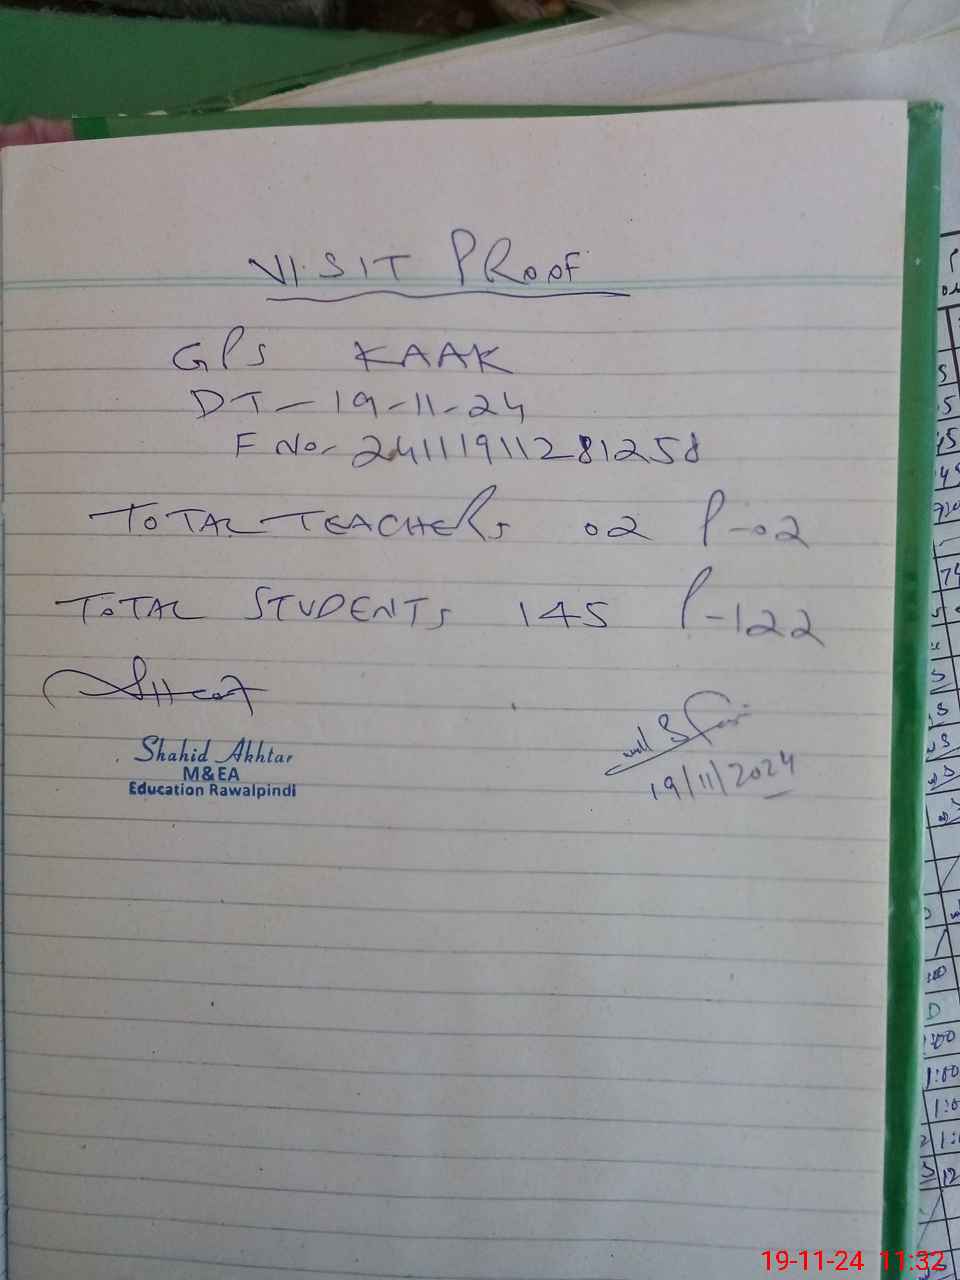 VISIT PROOF
GPS KAAK
DT-19-11-24
F No- 24111911281258
TOTAL TEACHERS 02 P-02
TOTAL STUDENTS 145 P-122
Shahid Akhtar
M&EA
Education Rawalpindi
19/11/2024
19-11-24 11:32